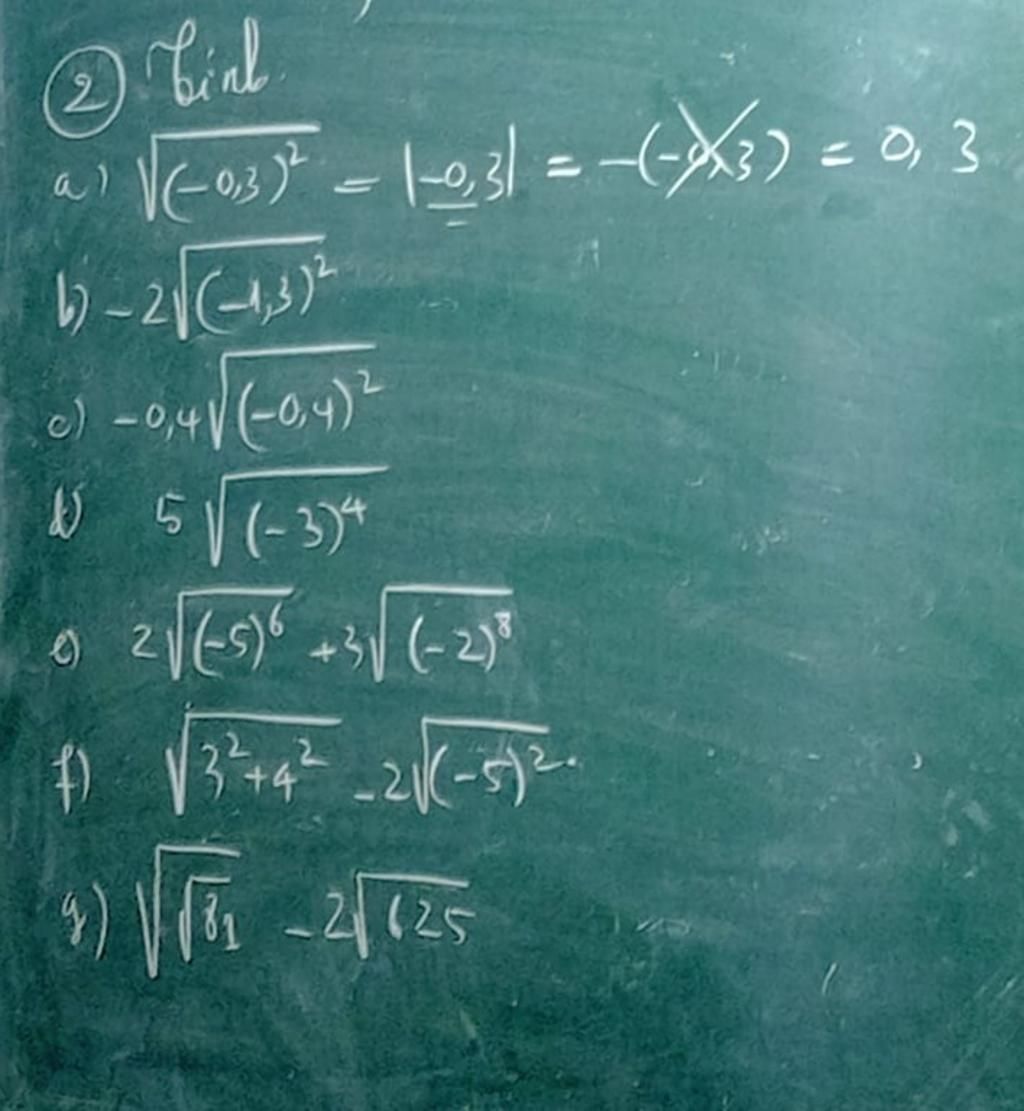 ② Tính.
a) √(-0,3)² = |-0,3| = -(-0,3) = 0,3
b) -2√(-1,3)²
c) -0,4√(-0,4)²
d) 5√(-3)⁴
e) 2√(-5)⁶ + 3√(-2)⁸
f) √3²+4² - 2√(-5)².
g) √√81 - 2√625